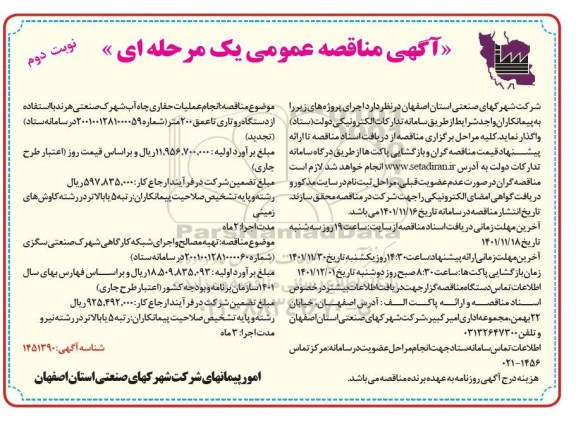 نوبت دوم
«آگهی مناقصه عمومی یک مرحله ای»
شرکت شهرکهای صنعتی استان اصفهان در نظر دارد اجرای پروژه های زیر را
به پیمانکاران واجد شرایط از طریق سامانه تدارکات الکترونیکی دولت (ستاد)
واگذار نماید. کلیه مراحل برگزاری مناقصه از دریافت اسناد مناقصه تا ارائه
پیشنهاد قیمت مناقصه گران و بازگشایی پاکت ها از طریق درگاه سامانه
تدارکات دولت به آدرس www.setadiran.ir انجام خواهد شد. لازم است
مناقصه گران در صورت عدم عضویت قبلی، مراحل ثبت نام در سایت مذکور و
دریافت گواهی امضای الکترونیکی را جهت شرکت در مناقصه محقق سازند.
تاریخ انتشار مناقصه در سامانه تاریخ ۱۴۰۱/۱۱/۱۶ می باشد.
آخرین مهلت زمانی دریافت اسناد مناقصه از سایت: ساعت ۱۹ روز سه شنبه
تاریخ ۱۴۰۱/۱۱/۱۸
آخرین مهلت زمانی ارائه پیشنهاد: ساعت ۱۴:۳۰ روز یکشنبه تاریخ ۱۴۰۱/۱۱/۳۰
زمان بازگشایی پاکت ها: ساعت ۸:۳۰ صبح روز دوشنبه تاریخ ۱۴۰۱/۱۲/۰۱
اطلاعات تماس دستگاه مناقصه گزار جهت دریافت اطلاعات بیشتر در خصوص
اسناد مناقصه و ارائه پاکت الف: آدرس اصفهان، خیابان
۲۲ بهمن، مجموعه اداری امیرکبیر، شرکت شهرکهای صنعتی استان اصفهان
و تلفن ۰۳۱۳۲۶۴۷۳۰۰
اطلاعات تماس سامانه ستاد جهت انجام مراحل عضویت در سامانه: مرکز تماس
۰۲۱-۱۴۵۶
هزینه درج آگهی روزنامه به عهده برنده مناقصه می باشد.
موضوع مناقصه: انجام عملیات حفاری چاه آب شهرک صنعتی هرند با استفاده
از دستگاه روتاری تا عمق ۲۰۰ متر (شماره ۲۰۰۱۰۰۱۲۸۱۰۰۰۰۵۹ در سامانه ستاد)
(تجدید)
مبلغ برآورد اولیه: ۱۱,۹۵۶,۷۰۰,۰۰۰ ریال و براساس قیمت روز (اعتبار طرح
جاری)
مبلغ تضمین شرکت در فرآیند ارجاع کار: ۵۹۷,۸۳۵,۰۰۰ ریال
رشته و پایه تشخیص صلاحیت پیمانکاران: رتبه ۵ یا بالاتر در رشته کاوش های
زمینی
مدت اجرا: ۲ ماه
موضوع مناقصه: تهیه مصالح و اجرای شبکه گازگاهی شهرک صنعتی سگزی
(شماره ۲۰۰۱۰۰۱۲۸۱۰۰۰۰۶۰ در سامانه ستاد)
مبلغ برآورد اولیه: ۱۸,۵۰۹,۸۳۵,۰۹۳ ریال و براساس فهارس بهای سال
۱۴۰۱ سازمان برنامه وبودجه کشور (اعتبار طرح جاری)
مبلغ تضمین شرکت در فرآیند ارجاع کار: ۹۲۵,۴۹۲,۰۰۰ ریال
رشته و پایه تشخیص صلاحیت پیمانکاران: رتبه ۵ یا بالاتر در رشته نیرو
مدت اجرا: ۳ ماه
شناسه آگهی: ۱۴۵۱۳۹۰
امور پیمانهای شرکت شهرکهای صنعتی استان اصفهان
ParsNamadData